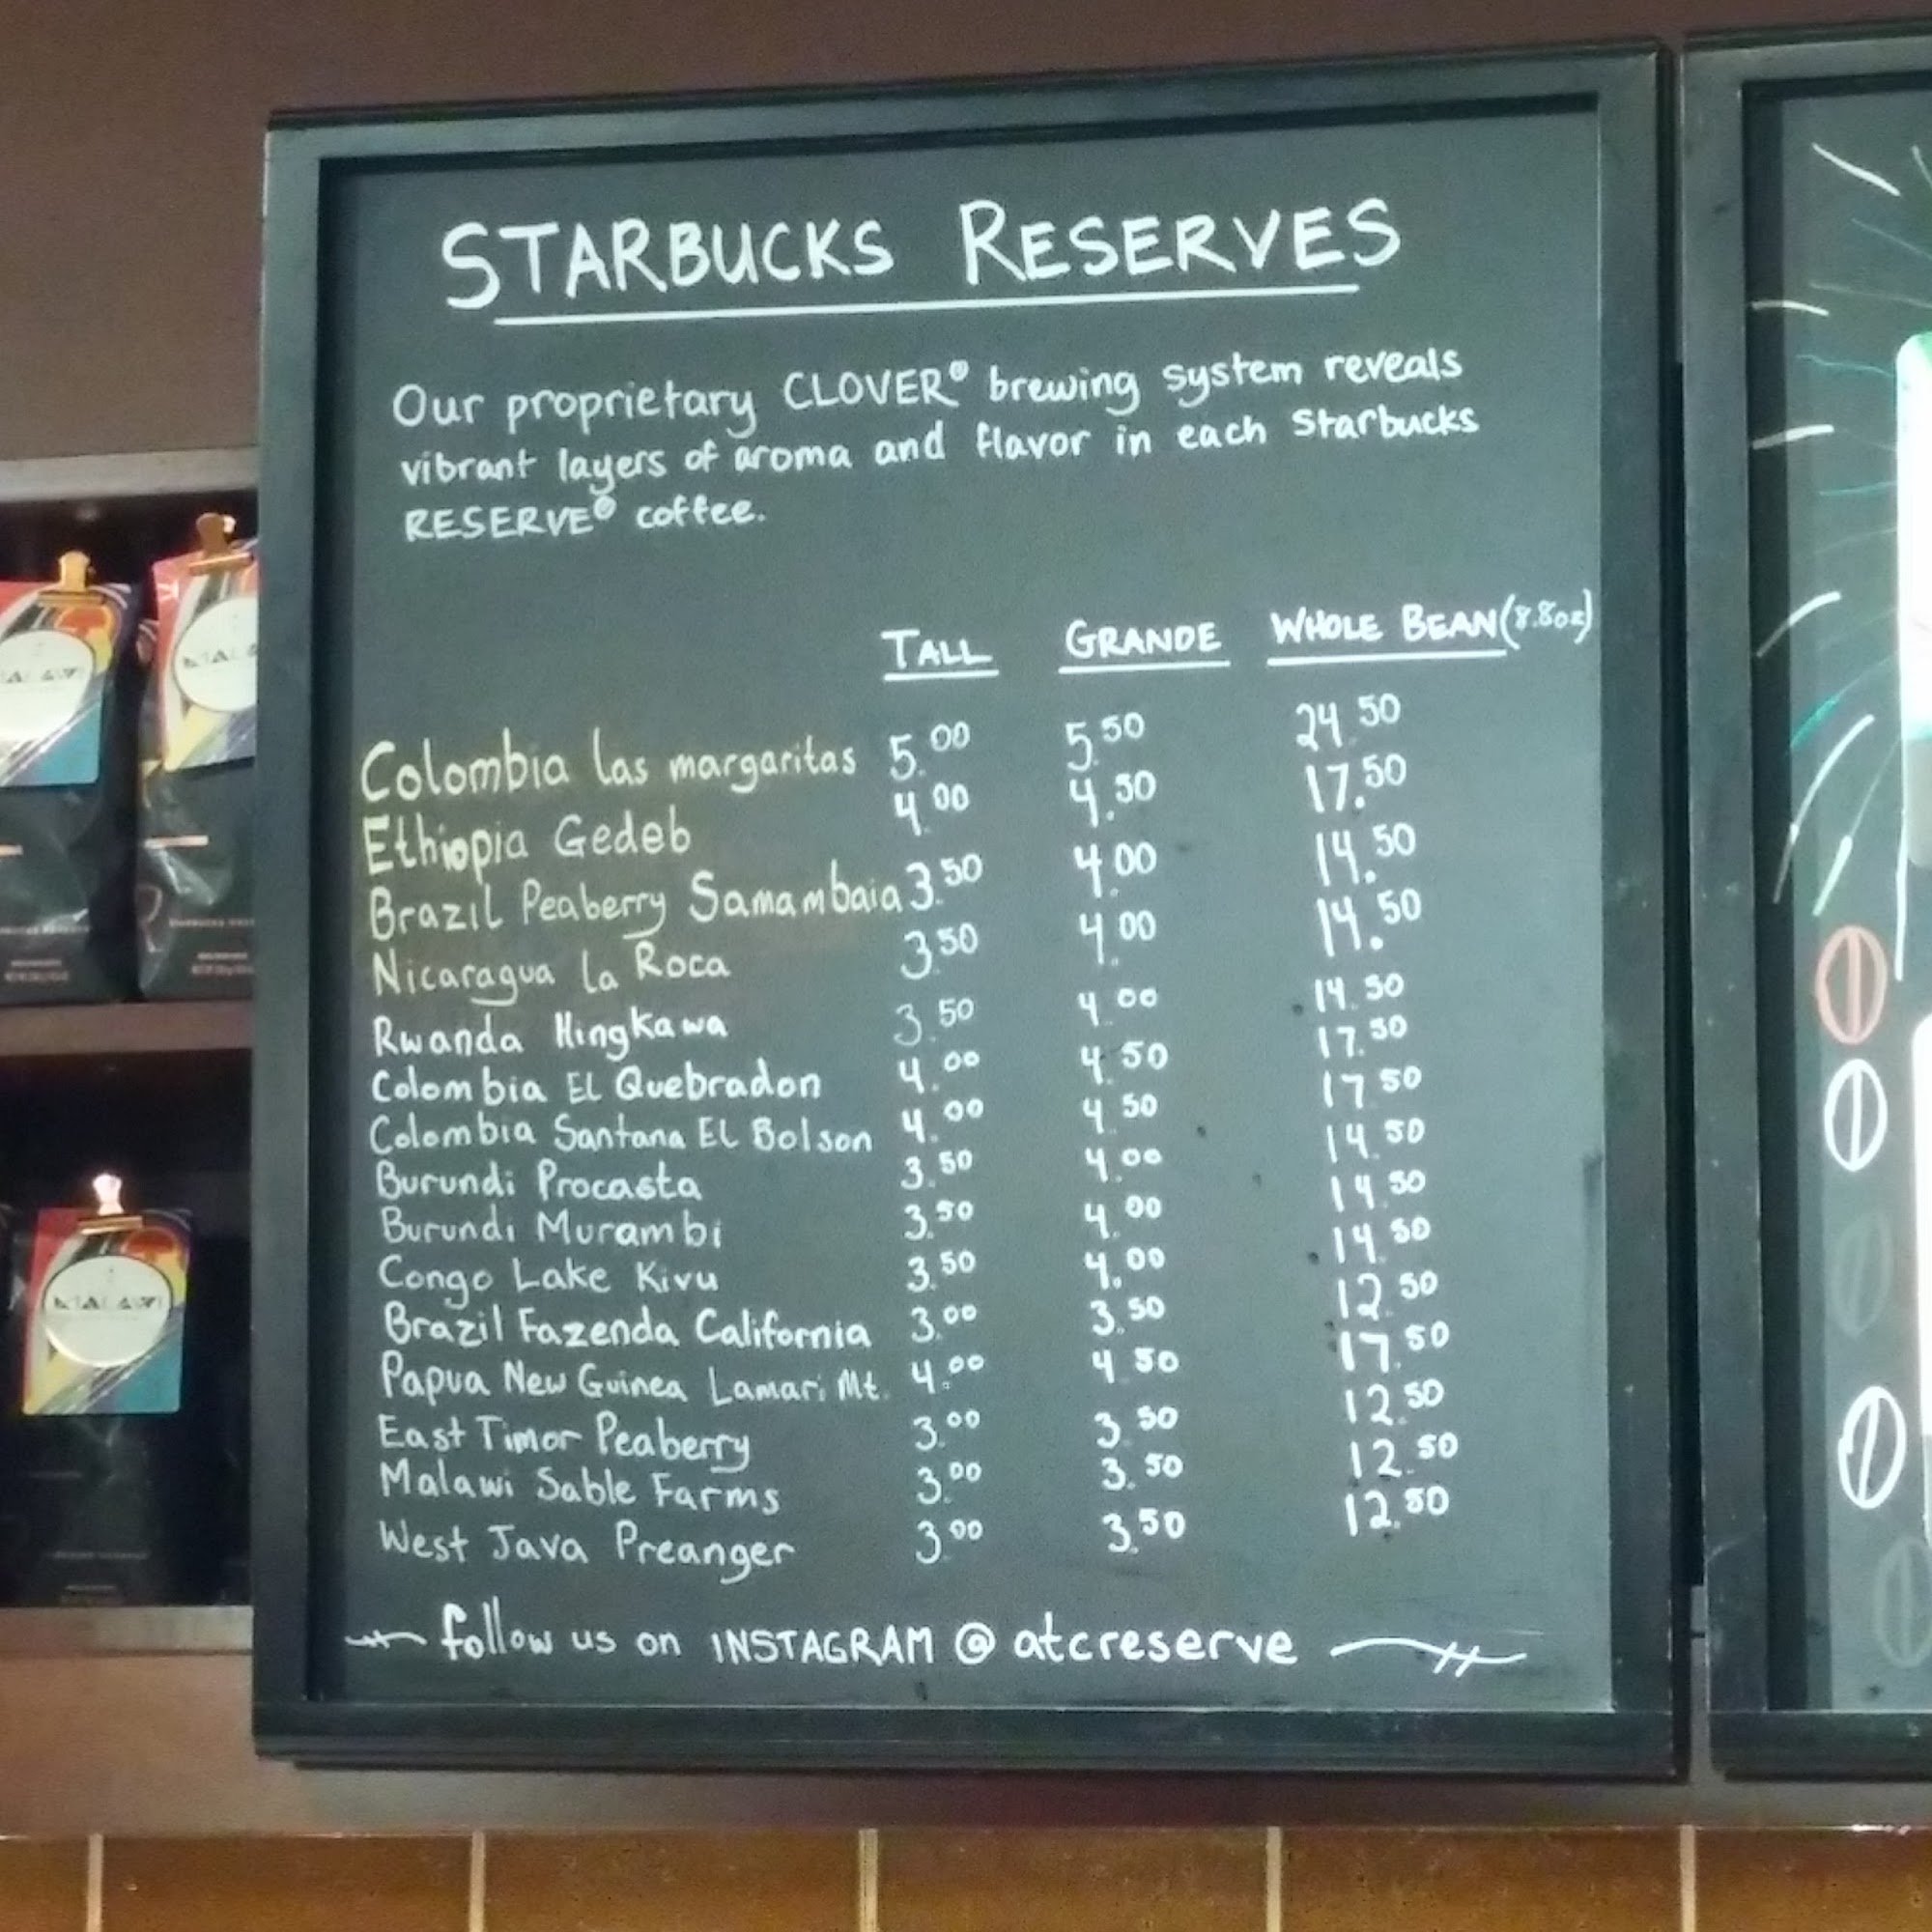 STARBUCKS RESERVES
Our proprietary CLOVER® brewing system reveals
vibrant layers of aroma and flavor in each Starbucks
RESERVE® coffee.
TALL GRANDE WHOLE BEAN (8.8oz)
Colombia las margaritas 5.00 5.50 24.50
Ethiopia Gedeb 4.00 4.50 17.50
Brazil Peaberry Samambaia 3.50 4.00 14.50
Nicaragua la Roca 3.50 4.00 14.50
Rwanda Hingkawa 3.50 4.00 14.50
Colombia EL Quebradon 4.00 4.50 17.50
Colombia Santana EL Bolson 4.00 4.50 17.50
Burundi Procasta 3.50 4.00 14.50
Burundi Murambi 3.50 4.00 14.50
Congo Lake Kivu 3.50 4.00 14.50
Brazil Fazenda California 3.00 3.50 12.50
Papua New Guinea Lamari Mt. 4.00 4.50 17.50
East Timor Peaberry 3.00 3.50 12.50
Malawi Sable Farms 3.00 3.50 12.50
West Java Preanger 3.00 3.50 12.50
follow us on INSTAGRAM @ atcreserve
MALAWI